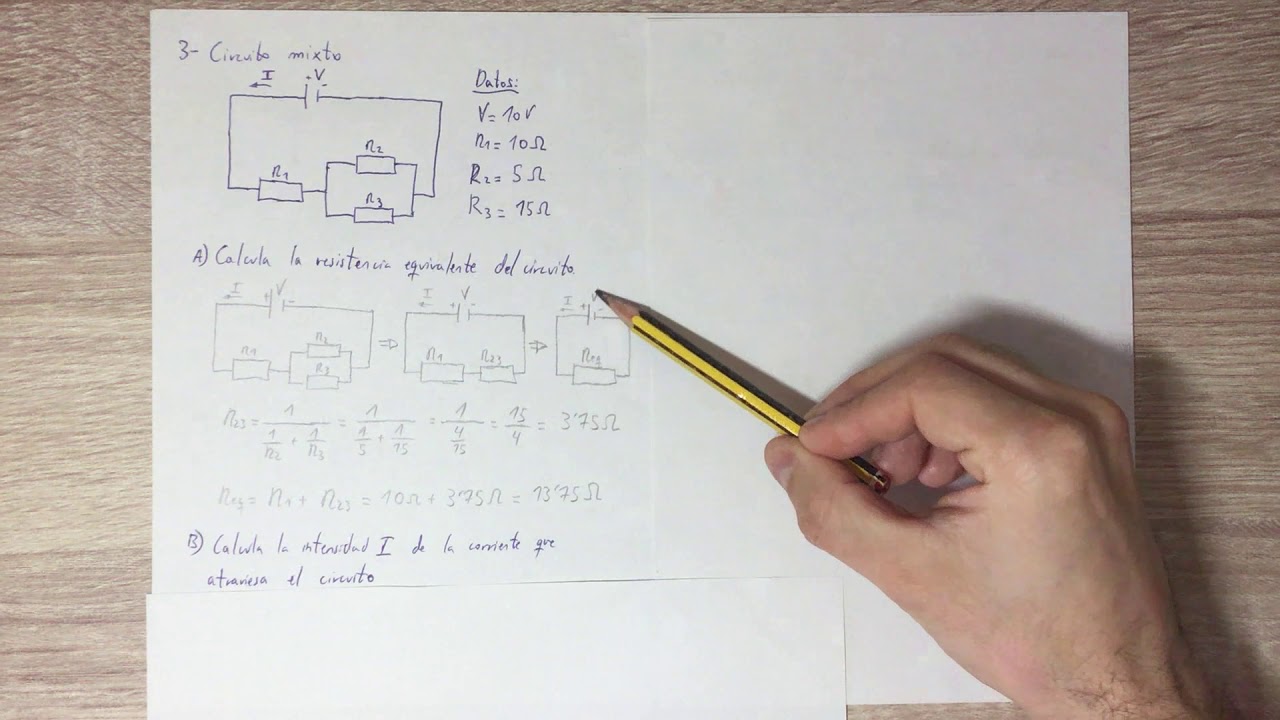 3- Circuito mixto
I
+ V -
R1
R2
R3
Datos:
V= 10V
R1= 10Ω
R2= 5Ω
R3= 15Ω
A) Calcula la resistencia equivalente del circuito.
I + V - I + V - I + V -
R1 R2 R3 ⇒ R1 R23 ⇒ Req
R23 = 1/(1/R2 + 1/R3) = 1/(1/5 + 1/15) = 1/(4/15) = 15/4 = 3'75Ω
Req = R1 + R23 = 10Ω + 3'75Ω = 13'75Ω
B) Calcula la intensidad I de la corriente que
atraviesa el circuito